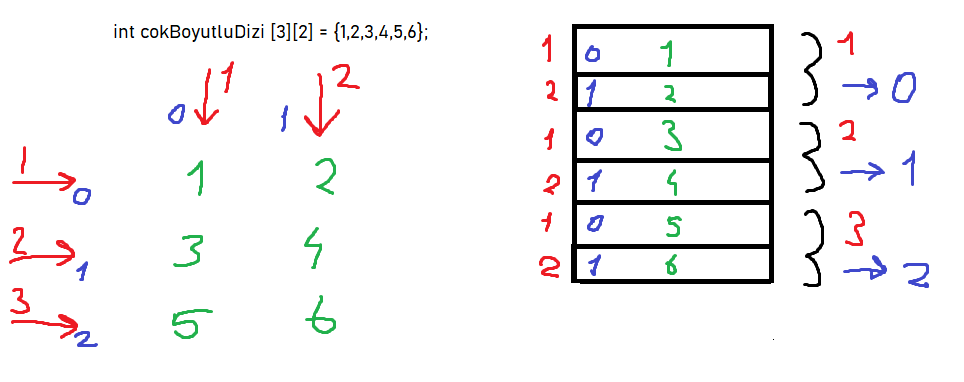 int cokBoyutluDizi [3][2] = {1,2,3,4,5,6};
1 2
0 1
1 0 1 2
2 1 3 4
3 2 5 6
1 0 1
2 1 2
1 → 0
1 0 3
2 1 4
2 → 1
1 0 5
2 1 6
3 → 2